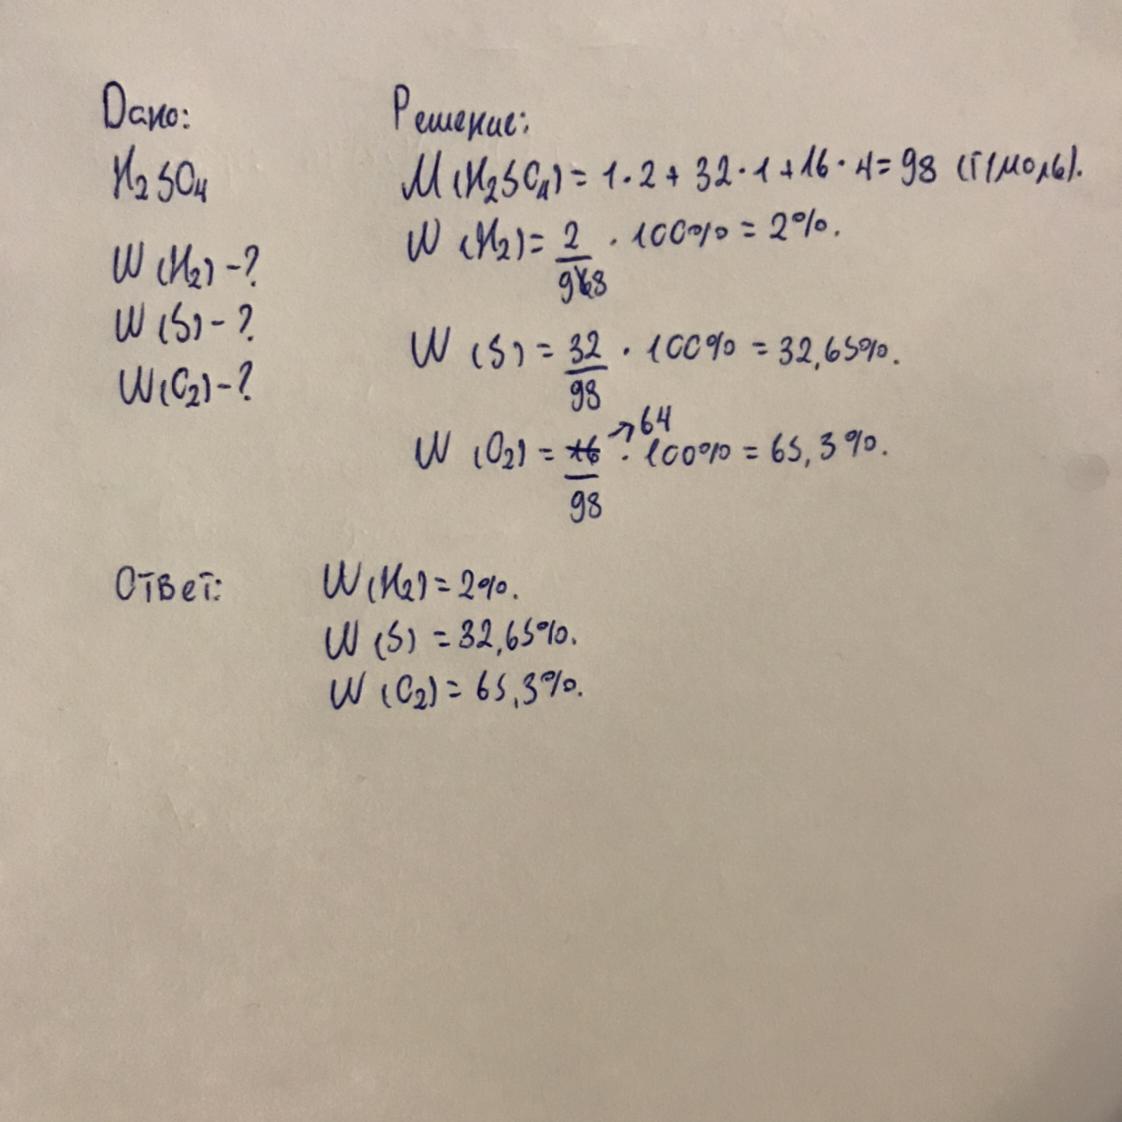 Дано:
H2SO4
W (H2) - ?
W (S) - ?
W (O2) - ?
Решение:
M (H2SO4) = 1 · 2 + 32 · 1 + 16 · 4 = 98 (г/моль).
W (H2) = 2/98 · 100% = 2%.
W (S) = 32/98 · 100% = 32,65%.
W (O2) = 16/98 → 64 · 100% = 65,3%.
Ответ:
W (H2) = 2%.
W (S) = 32,65%.
W (O2) = 65,3%.